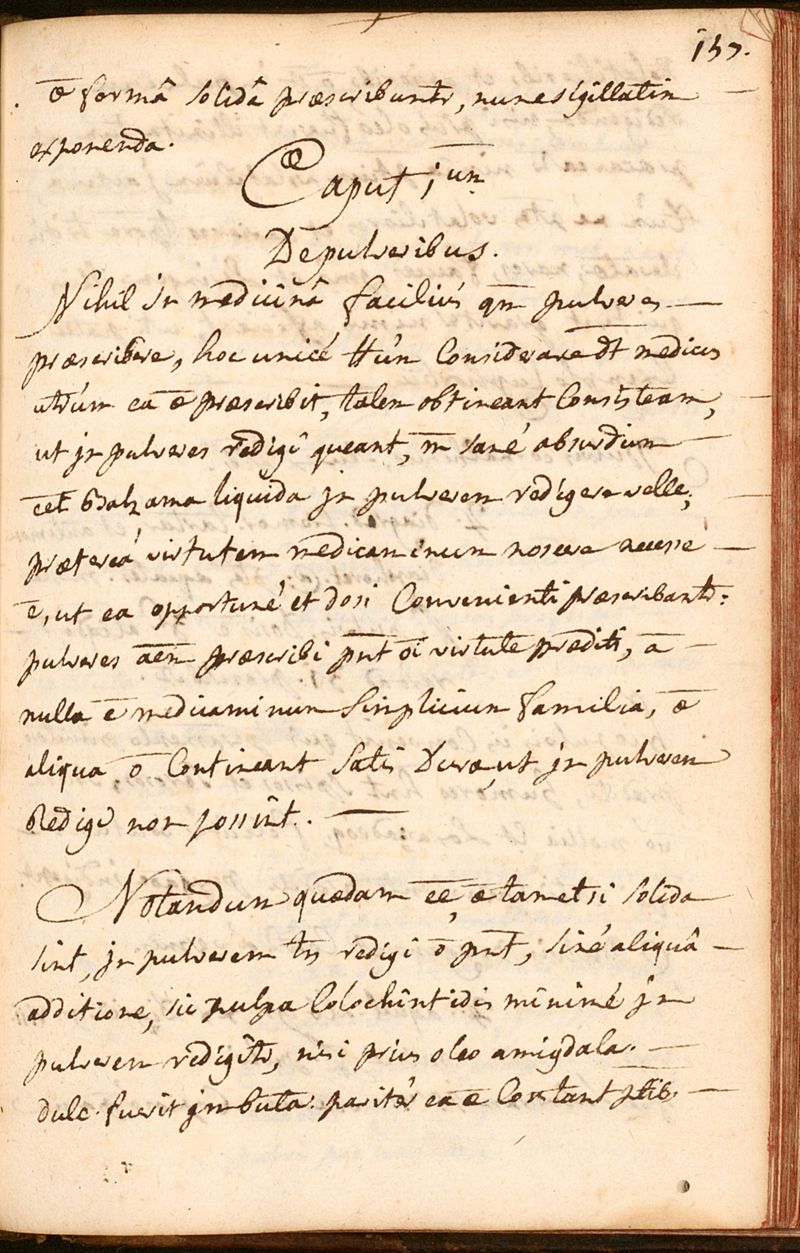 157.
ō formâ solidâ præscribuntr, nunc sigillatim
exponenda.
Caput jum
De pulveribus.
Nihil in medicinâ faciliús qm pulveres
præscribere, hoc unicé ttùm Considerare dt medicus
utrùm ea ō præscribit, talem obtineant Consisteam,
ut jn pulveres redigi queant, m̄ sané absurdum
eet Balzama liquida jn pulverem redigere velle,
prætereá virtutem medicaminum noscere necesse
ē, ut ea opportuné et dosi Convenienti præscribantr:
pulveres aem præscribi pnt oi virtute præditi, ā
nulla ē medicaminum Simplicium familia, ō
aliqua ō Contineant Satis Dura, ut jn pulverem
Redigi non possint.
Notandum quædam eē, ō tametsi solida
sint, jn pulverem tn redigi ō pnt, siné aliquâ
additione, sic pulpa Colochintidis minimé jn
pulverem redigitr, nisi prius oleo amigdala.
dulc. fuerit jmbuta. paritèr ea ō Constant ptib.